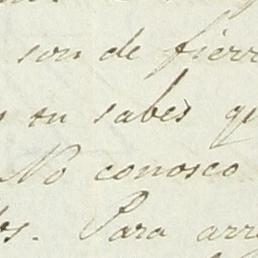 son de fierr
s en sabes qu
No conosco
os. Para arr